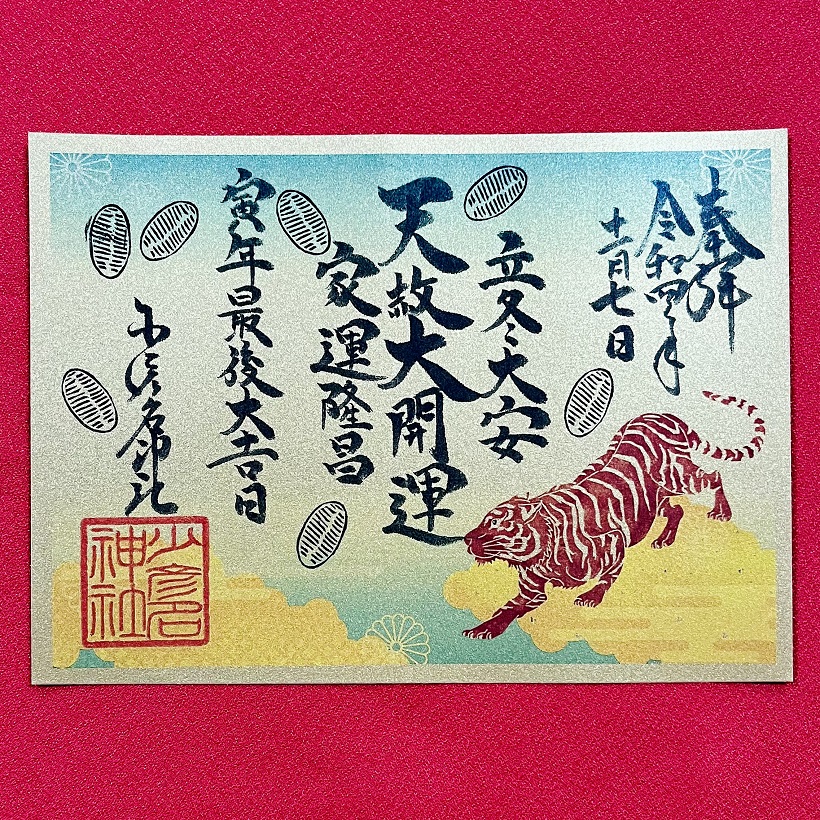 奉拝
令和四年
十一月七日
立冬大安
天赦大開運
家運隆昌
寅年最後大吉日
少彦名神社
少彦名
神社